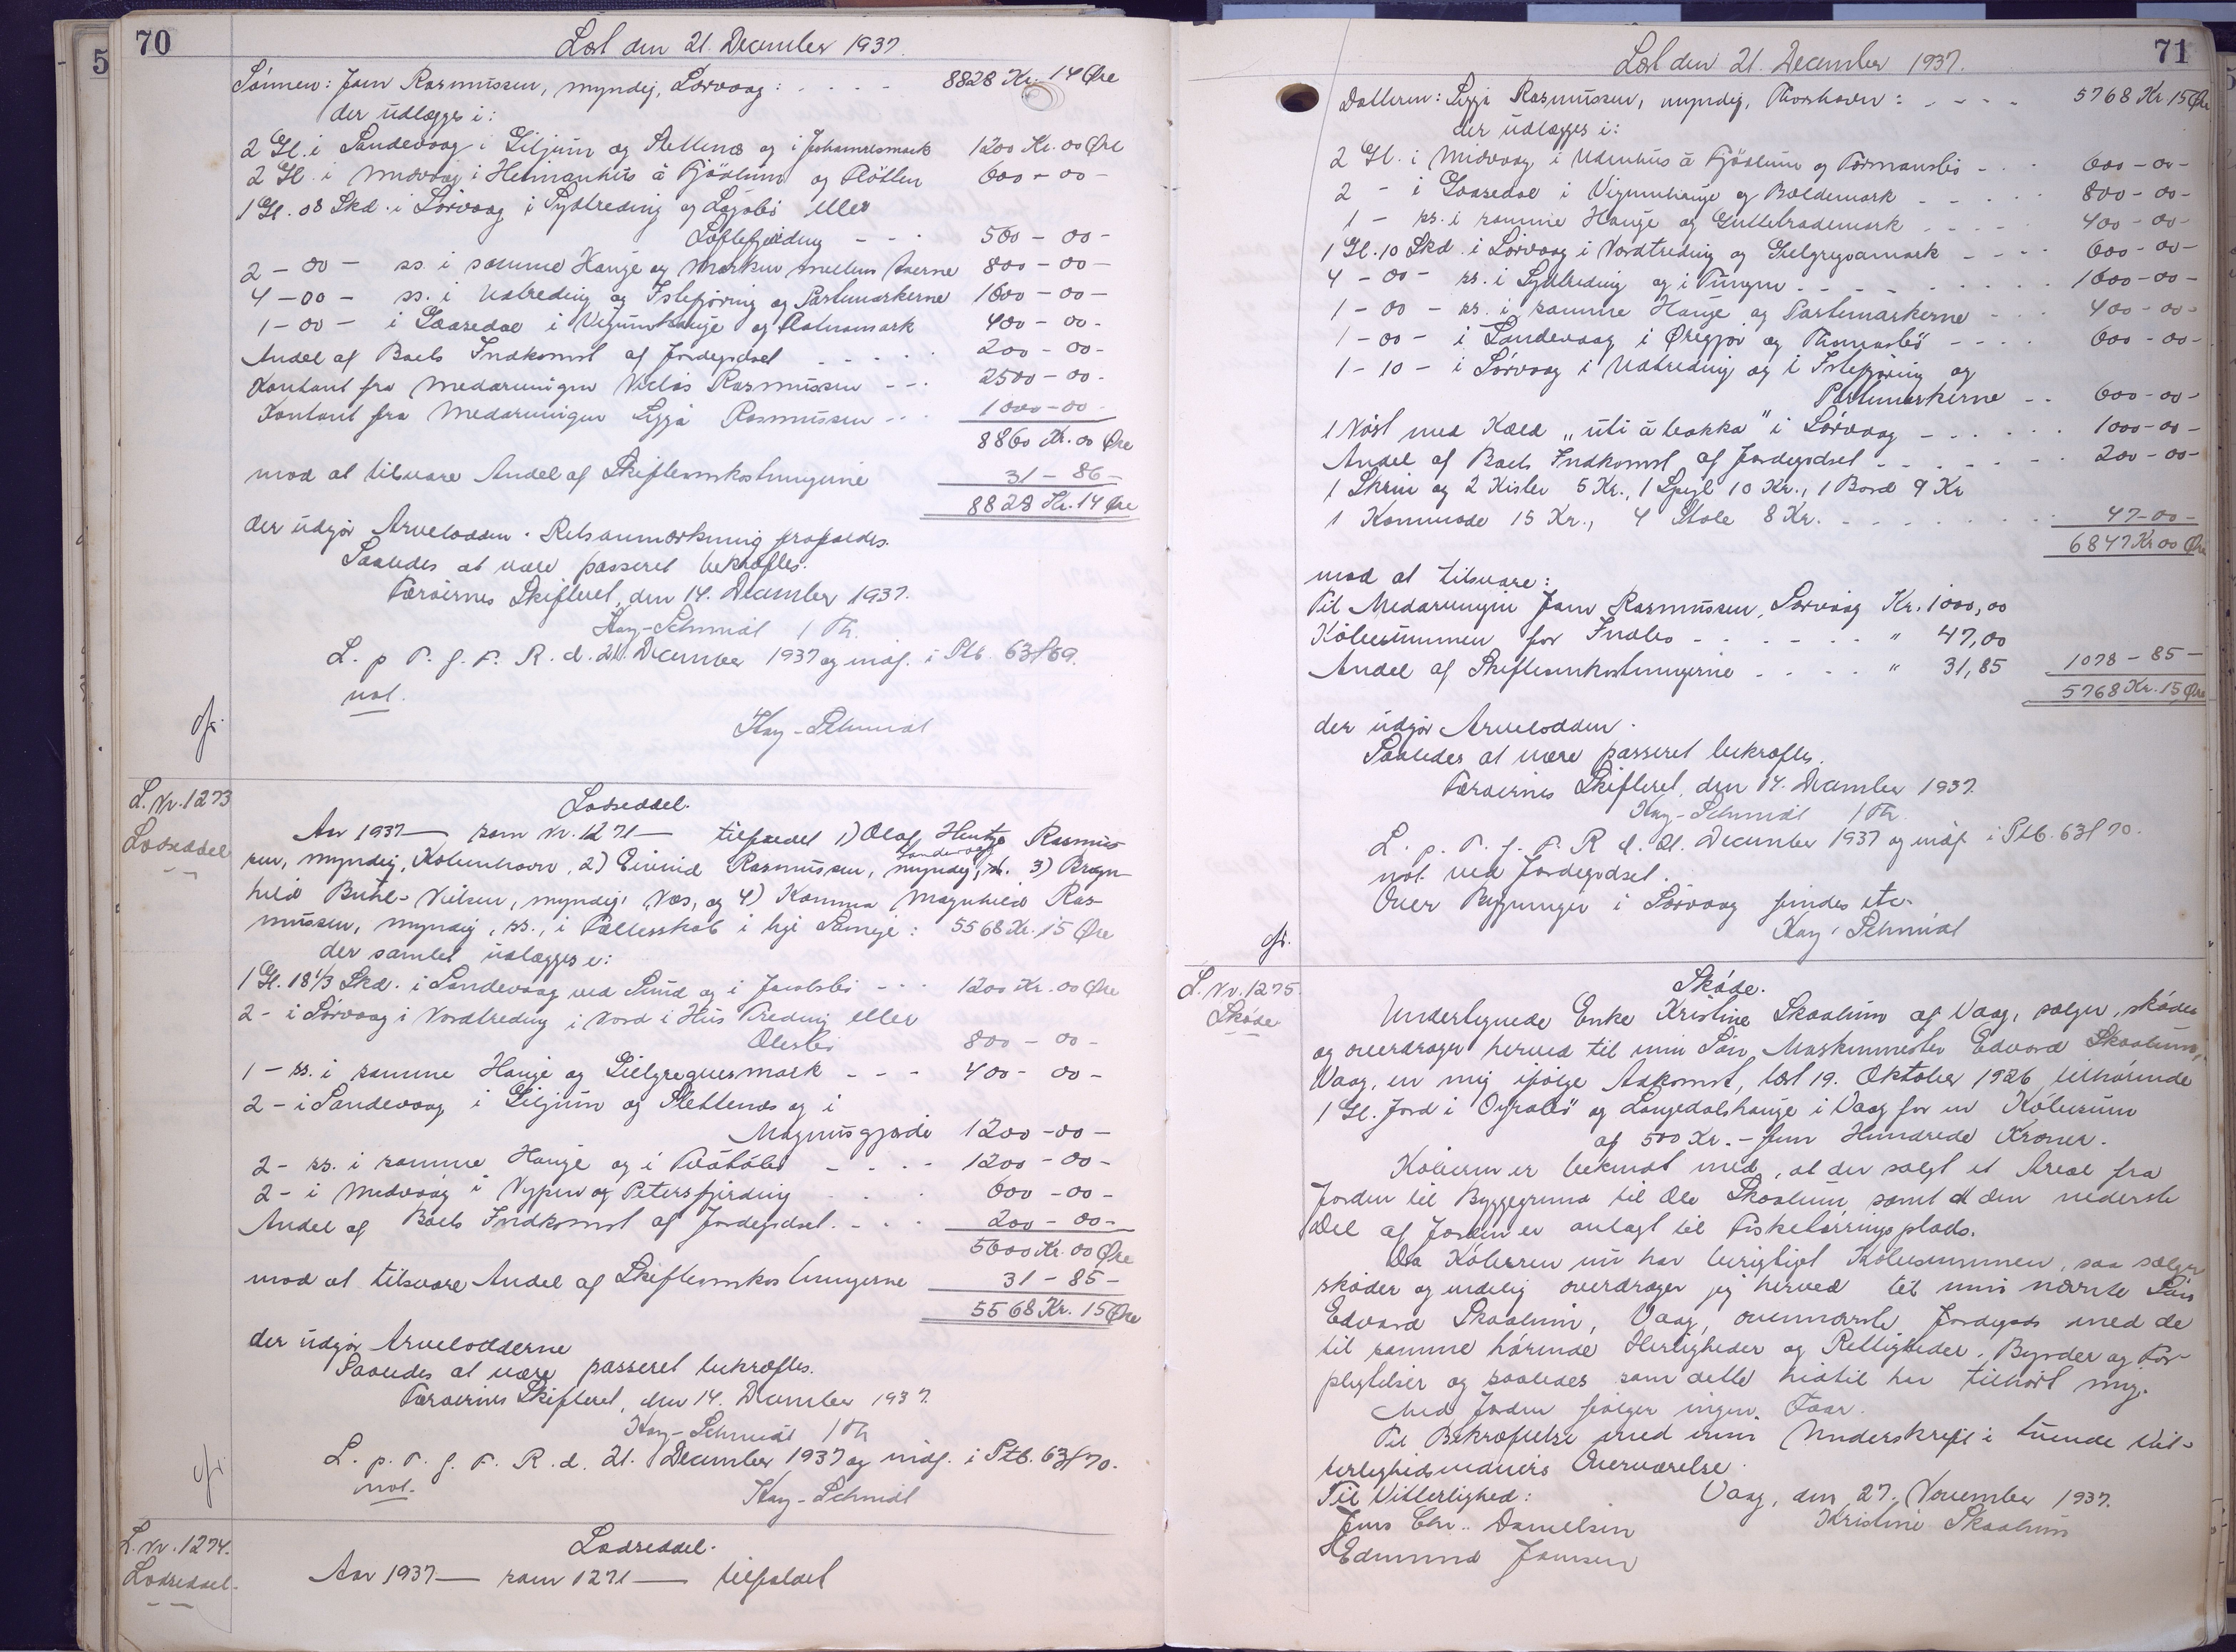 70
Læst den 21. December 1937.
Sønnen: Jam Rasmussen, myndig, Sørvaag: - - - - 8828 Kr. 14 Øre
der udlægges i:
2 Gl. i Sandevaag i Giljum og Slettenæs og i Johannesmark 1200 Kr. 00 Øre
2 Gl. i Midvaag i Heimanhus á Fjødlum og Fløtten 600 - 00 -
1 Gl. 08 Skd. i Sørvaag i Sydtreding og Løgobø eller
Loftefjerding - - - 500 - 00 -
2 - 00 - ss. i samme Hauje og Marken mellem Aaerne 800 - 00 -
4 - 00 - ss. i Udtreding og Istefjøring og Partemarkerne 1600 - 00 -
1 - 00 - i Gaasedal i Vigumhauje og mark 400 - 00 -
Andel af Boets Indkomst af Jordegodset - - - - - 200 - 00 -
Kontant fra Medarvingen Niclas Rasmussen - - - 2500 - 00 -
Kontant fra Medarvingen Siggja Rasmussen - - - 1000 - 00 -
8860 Kr. 00 Øre
mod at tilsvare Andel af Skifteomkostningerne 31 - 86 -
8828 Kr. 14 Øre
der udgør Arvelodden. Retsanmærkning frafaldes.
Saaledes at være passeret bekræftes.
Færøernes Skifteret, den 14. December 1937.
Kay-Schmidt / Th.
L. p. T. f. F. R. d. 21. December 1937 og indf. i Ptb. 63f 69.
not.
Kay-Schmidt
cfr.
L. Nr. 1273
Lodseddel
Lodseddel.
Aar 1937 — som Nr. 1271 — tilfaldet 1) Olaf Hentze Rasmus
sen, myndig, København, 2) Eivind Rasmussen, myndig, Sandevaag, 3) Bragn-
hild Buhl-Nielsen, myndig, Næs, og 4) Kamma Magnhild Ras-
mussen, myndig, ss., i Fællesskab i lige Sameje: 5568 Kr. 15 Øre
der samlet udlægges i:
1 Gl. 18 1/3 Skd. i Sandevaag ved Sund og i Jacobsbø - - - 1200 Kr. 00 Øre
2 - i Sørvaag i Nordtreding i Nord i Hus Treding eller
Olesbø 800 - 00 -
1 - ss. i samme Hauje og Gielgreguersmark - - - 400 - 00 -
2 - i Sandevaag i Giljum og Slettenæs og i
Magnusgjærde 1200 - 00 -
2 - ss. i samme Hauje og i - - - - 1200 - 00 -
2 - i Midvaag i Nypen og Petersfjerding - - - 600 - 00 -
Andel af Boets Indkomst af Jordegodset. - - - 200 - 00 -
5600 Kr. 00 Øre
mod at tilsvare Andel af Skifteomkostningerne 31 - 85 -
5568 Kr. 15 Øre
der udgør Arvelodderne
Saaledes at være passeret bekræftes.
Færøernes Skifteret, den 14. December 1937.
Kay-Schmidt / Th
L. p. T. f. F. R. d. 21. December 1937 og indf. i Ptb. 63f 70.
not.
Kay-Schmidt
cfr.
L. Nr. 1274.
Lodseddel.
Lodseddel.
Aar 1937 — som 1271 — tilfaldet
71
Læst den 21. December 1937.
Datteren: Siggja Rasmussen, myndig, Thorshavn: - - - - 5768 Kr. 15 Øre
der udlægges i:
2 Gl. i Midvaag i Udenhus á Fjødlum og Tormansbø - - - 600 - 00 -
2 - i Gaasedal i Vigumhauje og Boldemark - - - - - 800 - 00 -
1 - ss. i samme Hauje og Gullebrademark - - - - - 400 - 00 -
1 Gl. 10 Skd. i Sørvaag i Nordtreding og Gielgrygvamark - - - - 600 - 00 -
4 - 00 - ss. i Sydtreding og i Tungen - - - - - - - - 1600 - 00 -
1 - 00 - ss. i samme Hauje og Partemarkerne - - - 400 - 00 -
1 - 00 - i Sandevaag i Øregjov og Thomasbø - - - - 600 - 00 -
1 - 10 - i Sørvaag i Udtreding og i Istefjøring og
Partemarkerne - - 600 - 00 -
1 Nøst med Kæld „uti á bakka" i Sørvaag - - - - - - 1000 - 00 -
Andel af Boets Indkomst af Jordegodset - - - - - - 200 - 00 -
1 Skrin og 2 Kister 5 Kr., 1 Spejl 10 Kr., 1 Bord 9 Kr
1 Kommode 15 Kr., 4 Stole 8 Kr. - - - - - - - - 47 - 00 -
6847 Kr 00 Øre
mod at tilsvare:
Til Medarvingen Jam Rasmussen, Sørvaag Kr. 1000,00
Købesummen for Indbo - - - - - - " 47,00
Andel af Skifteomkostningerne - - - - " 31,85 1078 - 85 -
5768 Kr. 15 Øre
der udgør Arvelodden.
Saaledes at være passeret bekræftes.
Færøernes Skifteret, den 14. December 1937.
Kay-Schmidt / Th.
L. p. T. f. F. R. d. 21. December 1937 og indf. i Ptb. 63f 70.
not. ved Jordegodset.
Over Bygninger i Sørvaag findes etc.
Kay-Schmidt
cfr.
L. Nr. 1275.
Skøde
Skøde.
Undertegnede Enke Kristine Skaalum af Vaag, sælger, skøder
og overdrager herved til min Søn, Maskinmester Edvard Skaalum,
Vaag, en mig ifølge Adkomst, læst 19. Oktober 1926, tilhørende
1 Gl. Jord i Oyrabø og Langedalshauje i Vaag for en Købesum
af 500 Kr. - fem Hundrede Kroner.
Køberen er bekendt med, at der solgt et Areal fra
Jorden til Byggegrund til Ole Skaalum samt at den nederste
Del af Jorden er anlagt til Fisketørringsplads.
Da Køberen nu har berigtiget Købesummen, saa sælger
skøder og endelig overdrager jeg herved til min nævnte Søn
Edvard Skaalum, Vaag, ovennævnte Jordegods med de
til samme hørende Herligheder og Rettigheder, Byrder og For-
pligtelser og saaledes som dette hidtil har tilhørt mig.
Med Jorden følger ingen Faar.
Til Bekræftelse med min Underskrift i tvende Vit-
terlighedsvidners Overværelse.
Til Vitterlighed: Vaag, den 27. November 1937.
Jens Chr. Danielsen Kristine Skaalum
Edmund Joensen